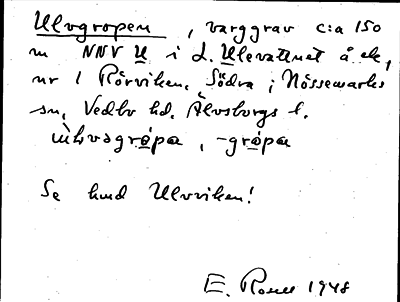 Ulvgropen, varggrav c:a 150
m NNV U i L. Ulevattnet å ek,
nr 1 Rörviken, Södra i Nössemarks
sn, Vedbo hd, Älvsborgs l.
-grópa
Se hmd Ulvviken!
E. Rosell 1948